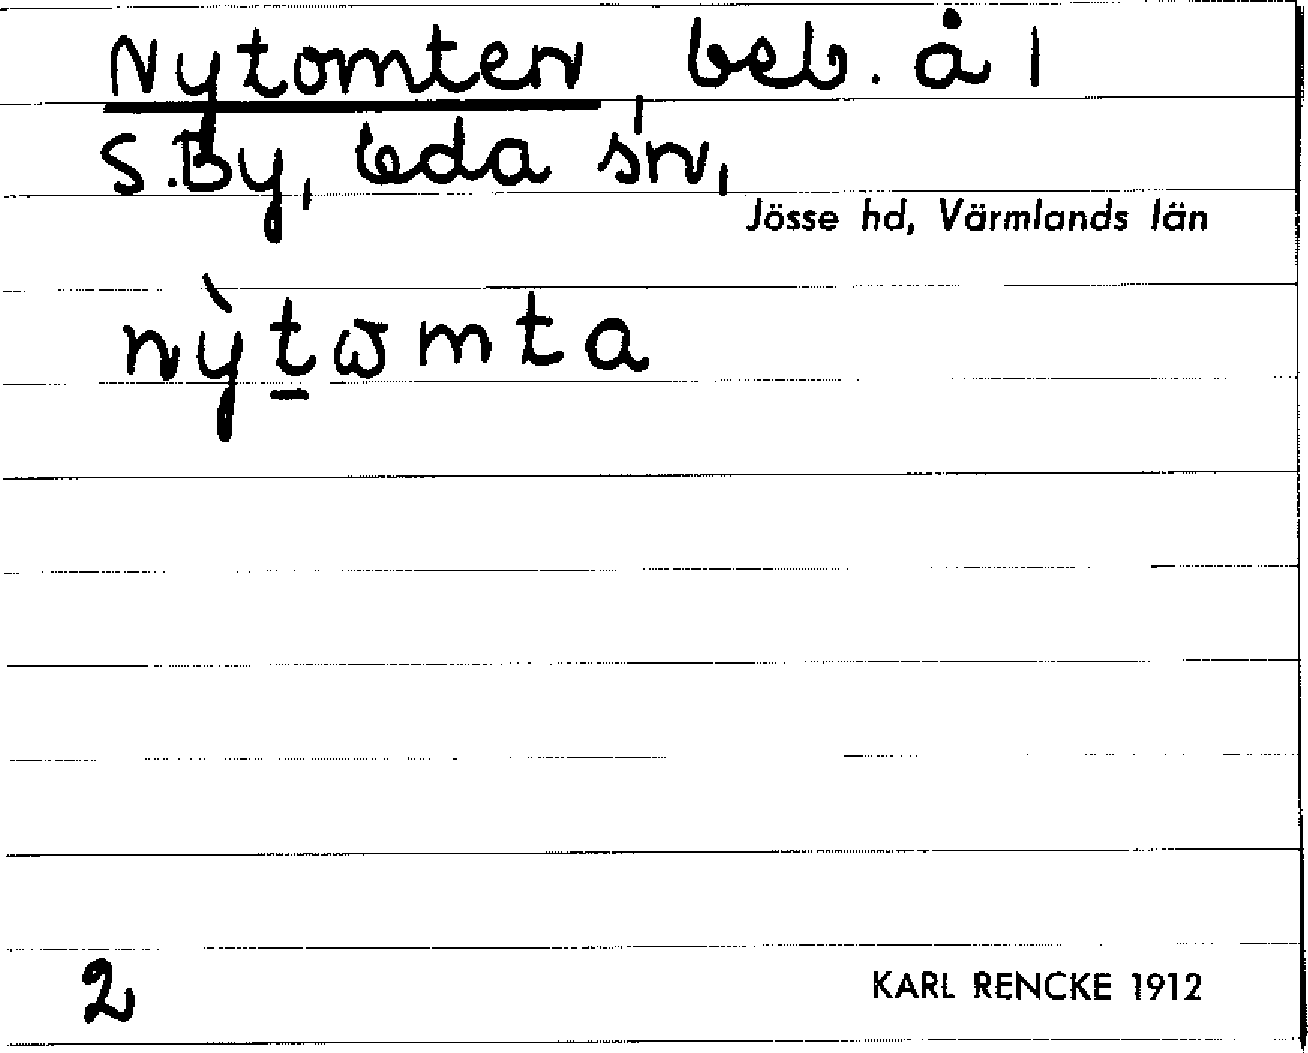 Nytomten, beb. å 1
S. By, Eda sn,
Jösse hd, Värmlands län
nỳt̲ωmta
2
KARL RENCKE 1912